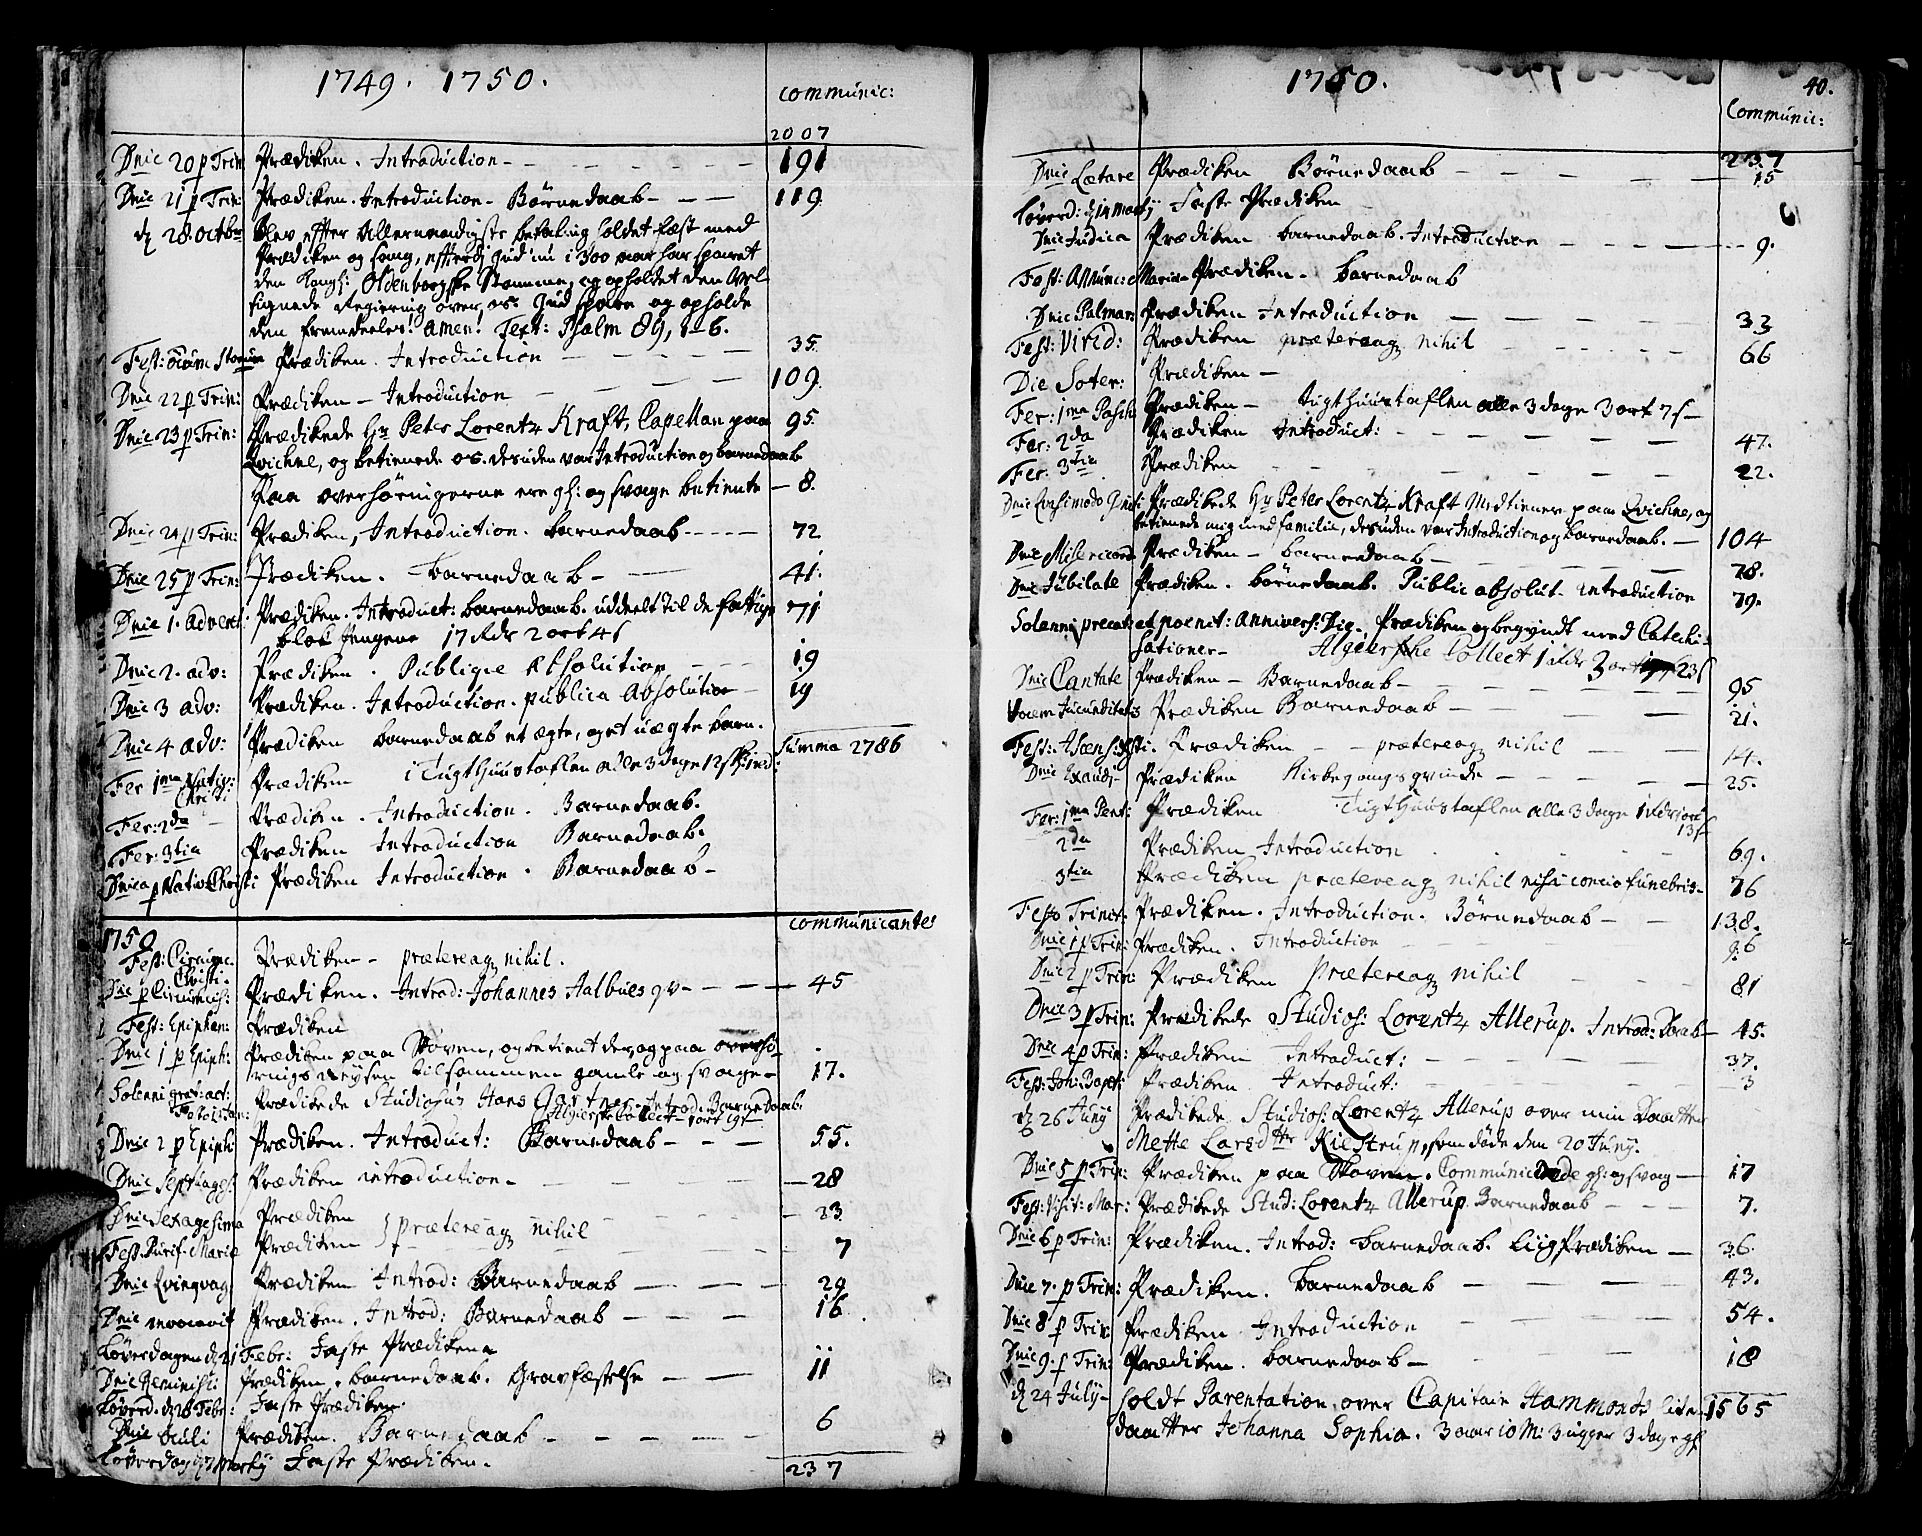 1749. 1750.
communic:
2007
Dnic 20 p Trin: Prædiken. Introduction - 191
Dnic 21 p Trin: Prædiken. Introduction - Børnedaab - 119
d 28 octbr Blev effter Allernaadigste befaling holdet fæst med
Prædiken og sang, effterdj Gud nu i 300 aar har sparet
den Kongl: Oldenborgske Stamme, og opholdet den Vel
signede Regiering over os. Gud spare og opholde
den fremdeeles! Amen! Text: Psalm 89, 1-6.
Fest: ōium Storum Prædiken. Introduction - 35
Dnic 22 p Trin: Prædiken - Introduction - 109.
Dnic 23 p Trin: Prædikede Hr Peter Lorentz Kraft, Capellan paa 95.
Qvichne, og betienede os. desuden var Introduction og barnedaab
Paa oversørningerne ere gl: og svage betiente - 8.
Dnic 24 p Trin: Prædiken, Introduction. barnedaab - 72
Dnic 25 p Trin: Prædiken. barnedaab - 41.
Dnic 1. Advent: Prædiken. Introduct: barnedaab. uddeelt til de fattige 71
blok pengene 17 rdr 2 ort 4 s
Dnic 2. adv: Prædiken. Publique Absolution - 19
Dnic 3 adv: Prædiken. Introduction. publica Absolution - 19
Dnic 4 adv: Prædiken barnedaab et ægte, og et uægte barn.
Summa 2786
Fer 1ma Nativ: Christi Prædiken i Tugthuustaflen alle 3 dage 12 sk:
Fer: 2da - Prædiken. Introduction. Barnedaab.
Fer: 3tia Prædiken Introduction Barnedaab.
Dnica p Nativ Christi Prædiken Introduction. Barnedaab -
communicantes
1750
Fest: Circumc. Christi. Prædiken - prætereaqz nihil.
Dnic p Circumcis: Prædiken. Introd: Johannes Aalbues qv - 45
Fest: Epiphan: Prædiken
Dnic 1 p Epiph: Prædiken paa Voven, og betient der og paa oversø-
rnings Reysen tilsammen gamle og svage - 17.
Solenni grat: act: Prædikede Studiosus Hans Gartner - Introd. Barnedaab.
Algierske Collect 1 ort 19 s
Dnic 2 p Epiph: Prædiken. Introduct: Barnedaab - 55.
Dnic Septuages: Prædiken introduction - 28
Dnic Sexagesima Prædiken } prætereaqz nihil - 23
Fest: Purif: Mariæ Prædiken - 7
Dnic Qvinqvag: Prædiken Introd: Barnedaab - 29
Dnic Invocavit Prædiken. Introd: Barnedaab - 16
Løverdagen d 21 Febr: Faste Prædiken
Dnic Reminisc: Prædiken. barnedaab. Gravfæstelse - 11
Løverd. d 28 Febr: Faste Prædiken.
Dnic Oculi Prædiken. Barnedaab - 6
Løverdag d 7 Martij Faste Prædiken.
237
1750.
40.
Communic:
237
Dnic Lætare Prædiken Børnedaab - 15
Løverd: d 14 Martij Faste Prædiken
Dnic Judica Prædiken barnedaab. Introduction - 9.
Fest: Annunc: Mariæ Prædiken. barnedaab
Dnic Palmar: Prædiken Introduction - 33
Fest: Virid: Prædiken prætereaqz nihil - 66
Die Soter: Prædiken -
Fer: 1ma Pasch: Prædiken - Tugthuustaflen alle 3 dage 3 ort 7 s -
Fer: 2da Prædiken Introduct: - 47.
Fer: 3tia Prædiken - 22.
Dnic Qvasimodo Geniti Prædikede Hr Peter Lorentz Kraft Medtiener paa Qvichne, og
betienede mig med familie, desuden var Introduction og barnedaab. - 104
Dnic Misericord Prædiken - barnedaab - 78.
Dnic Jubilate Prædiken. børnedaab. Public absolut - introduction 79.
Solenni precat: et poenit: Annivers: Die. Prædiken og begyndt med Catechi-
sationer - Algierske Collect 1 rdr 3 ort 23 s
Dnic Cantate Prædiken - Barnedaab - 95
Vocem Jucunditatis Prædiken Barnedaab - 21.
Fest: Ascens: Xsti. Prædiken - prætereaqz nihil - 14.
Dnic Exaudi Prædiken Kirkegangsqvinde - 25.
Fer: 1ma Pent: Prædiken Tugthuustaflen alle 3 dage 1 rdr 1 ort
13 s
2da Prædiken Introduction - 69.
3tia Prædiken prætereaqz nihil nisi concio funebris - 76
Festo Trinit: Prædiken. Introduction. Børnedaab - 138.
Dnic 1 p Trin: Prædiken. Introduction - 96
Dnic 2 p Trin: Prædiken Prætereaqz nihil - 81
Dnic 3 p Trin: Prædikede Studios: Lorentz Allerup. Introd: Daab - 45.
Dnic 4 p Trin: Prædiken Introduct: - 37.
Fest: Joh: Bapt: Prædiken. Introduct: - 3
d 26 Junij Prædikede Studios: Lorentz Allerup over min Daatter
Mette Larsdttr Kiestrup, som døde den 20 Junij.
Dnic 5 p Trin: Prædiken paa Voven. Communicerede gl: og svag - 17
Fest: Visit: Mar: Prædikede Stud: Lorentz Allerup. Barnedaab - 7.
Dnic 6 p Trin: Prædiken. Introd: barnedaab. Liig Prædiken - 36.
Dnic 7. p Trin: Prædiken. barnedaab - 43.
Dnic 8 p Trin: Prædiken. Introduction - 54.
Dnic 9. p Trin: Prædiken. barnedaab - 18
d 24 July - holdt Parentation over Capitain Hammonds liden 1565
daatter Johanna Sophia. 3 aar 10 M: 3 uger 3 dage gl